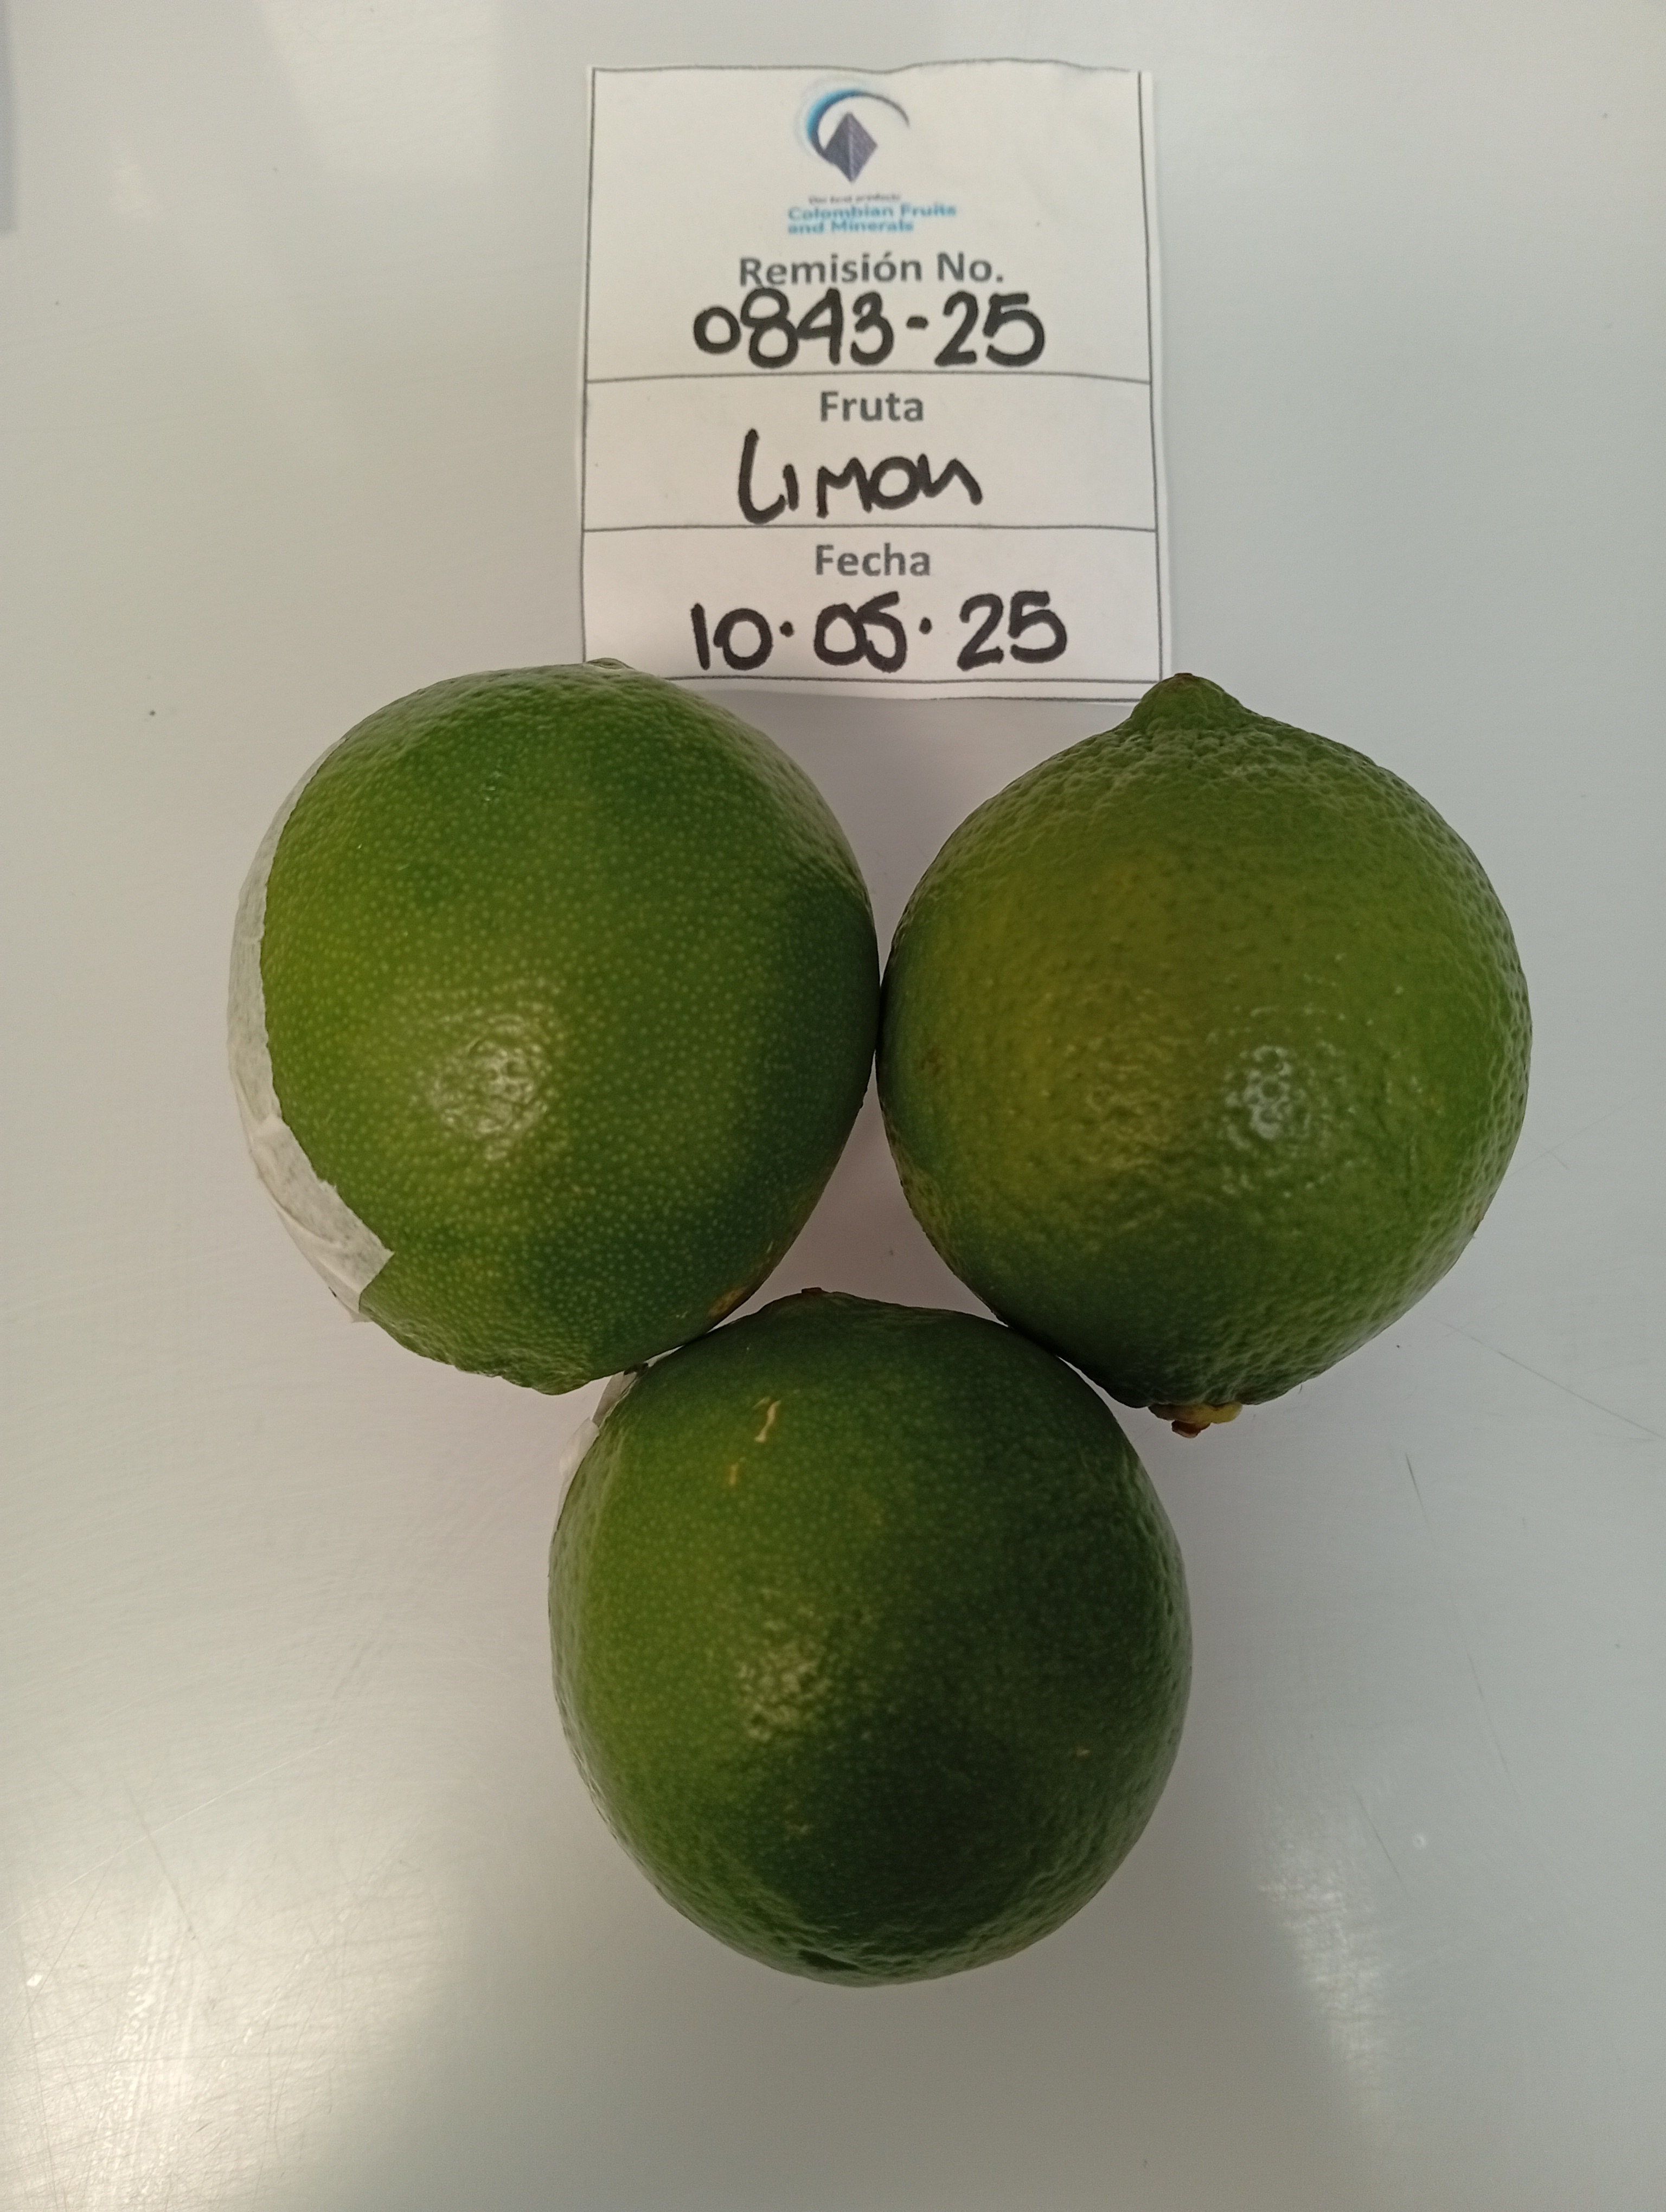 Our best products
Colombian Fruits
and Minerals
Remisión No.
0843-25
Fruta
Limon
Fecha
10·05·25